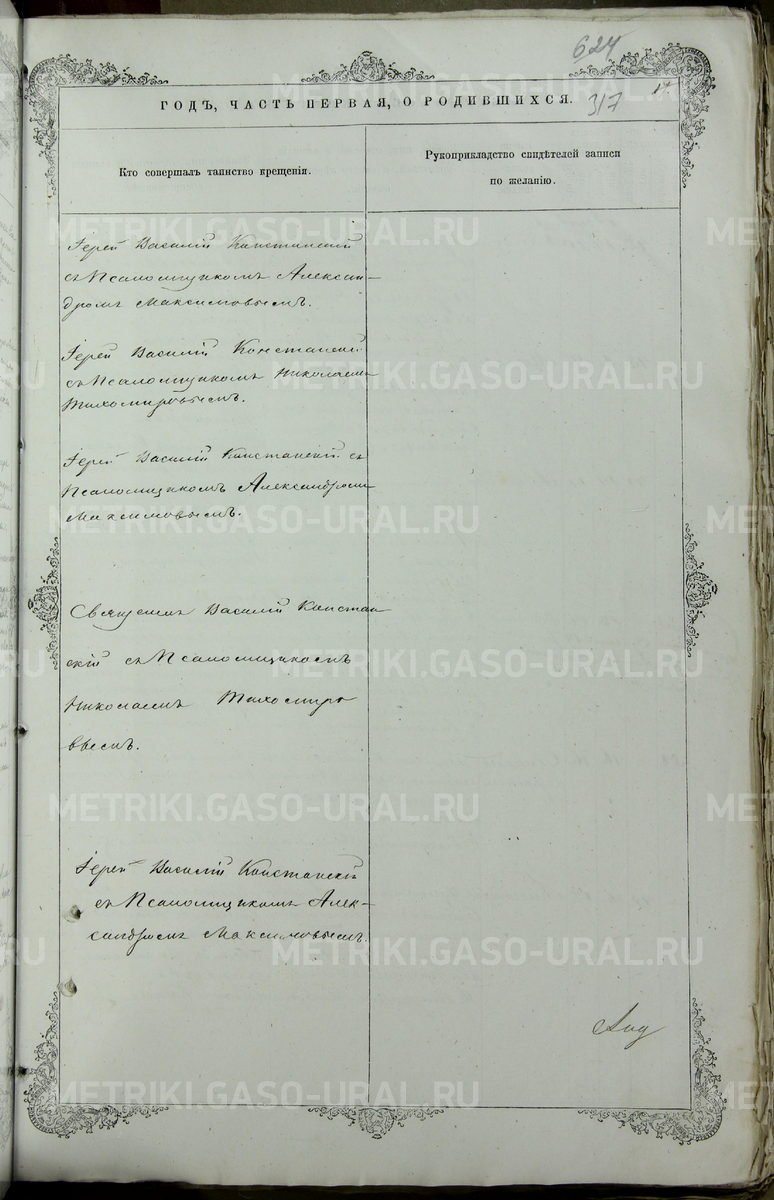 624
14
ГОДЪ, ЧАСТЬ ПЕРВАЯ, О РОДИВШИХСЯ. 317
Кто совершалъ таинство крещенія.
Рукоприкладство свидѣтелей записи
по желанію.
Іерей Василій Констанскій
съ Псаломщикомъ Алексан-
дромъ Максимовымъ.
Іерей Василій Констанскій
съ Псаломщикомъ Николаемъ
Тихомировымъ.
Іерей Василій Констанскій съ
Псаломщикомъ Александромъ
Максимовымъ.
Священникъ Василій Констан
скій съ Псаломщикомъ
Николаемъ Тихомиро
вымъ.
Іерей Василій Констанскій
съ Псаломщикомъ Алек-
сандромъ Максимовымъ.
METRIKI.GASO-URAL.RU